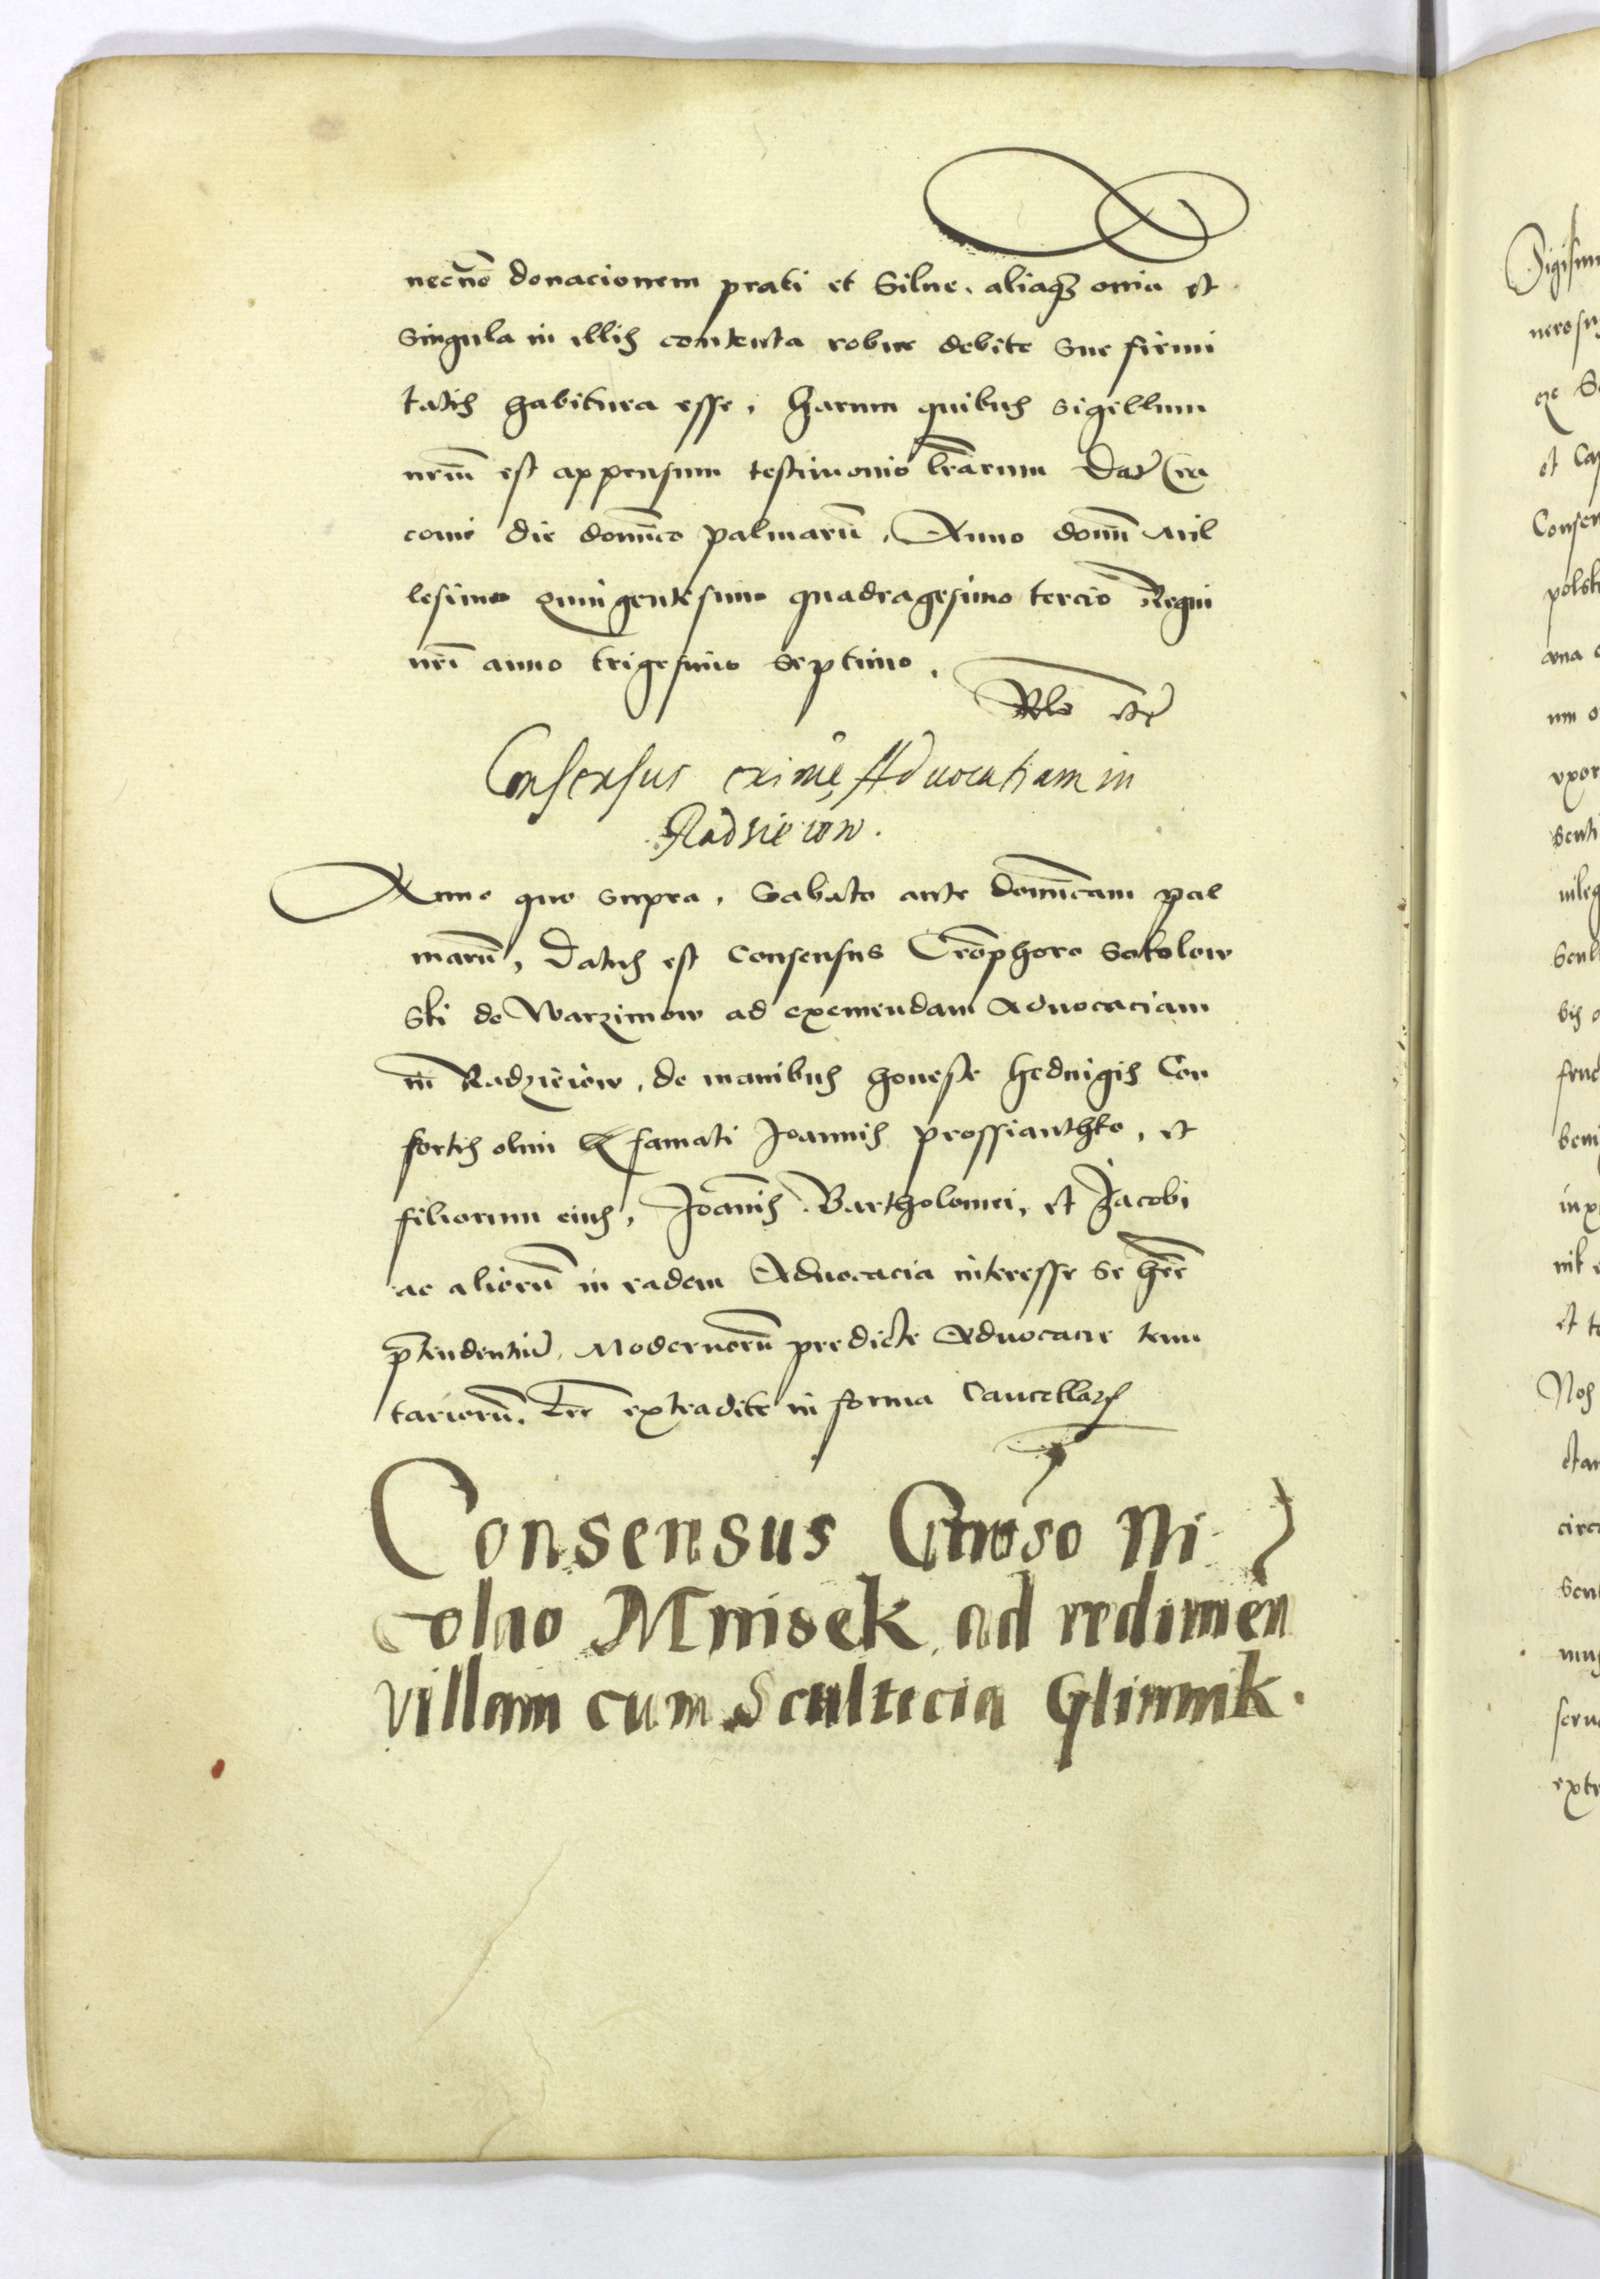 necnō donacionem prati et Silue, aliaqȝ om̄ia et
singula in illis contenta robur debite sue firmi
tatis habitura esse. Harum quibus sigillum
nrūm est appensum testimonio lr̄arum Dat Cra
covie die domīco palmarū, Anno domī Mil
lesimo Quingentesimo quadragesimo tercio Regni
nrī anno trigesimo septimo.
Rlo etc
Consensus eximēˀ Advocatiam in
Radzieiow.
Anno quo supra, Sabato ante domīcam pal
marū, Datus est Consensus Crōphoro Sokolow
ski de Warzimow ad exemendam Advocaciam
in Radzieiow, de manibus honeste Hedvigis Con
sortis olim famati Joannis prossianthko, et
filiorum eius, Joānis Bartholomei, et Jacobi
ac aliorū in eadem Advocacia interesse se hr̄e
p̄tendentiū, Modernorū predicte Advocacie tenu
tariorū. Lr̄e extradite in forma Cancellar̄
Consensus Gn̄oso Ni
colao Mnisek ad redimen
villam cum Scultecia Glinnik.
Sigism
nerosu
et Ca
Consen
polsk
uxor
senti
et te
Nos
circa
extr